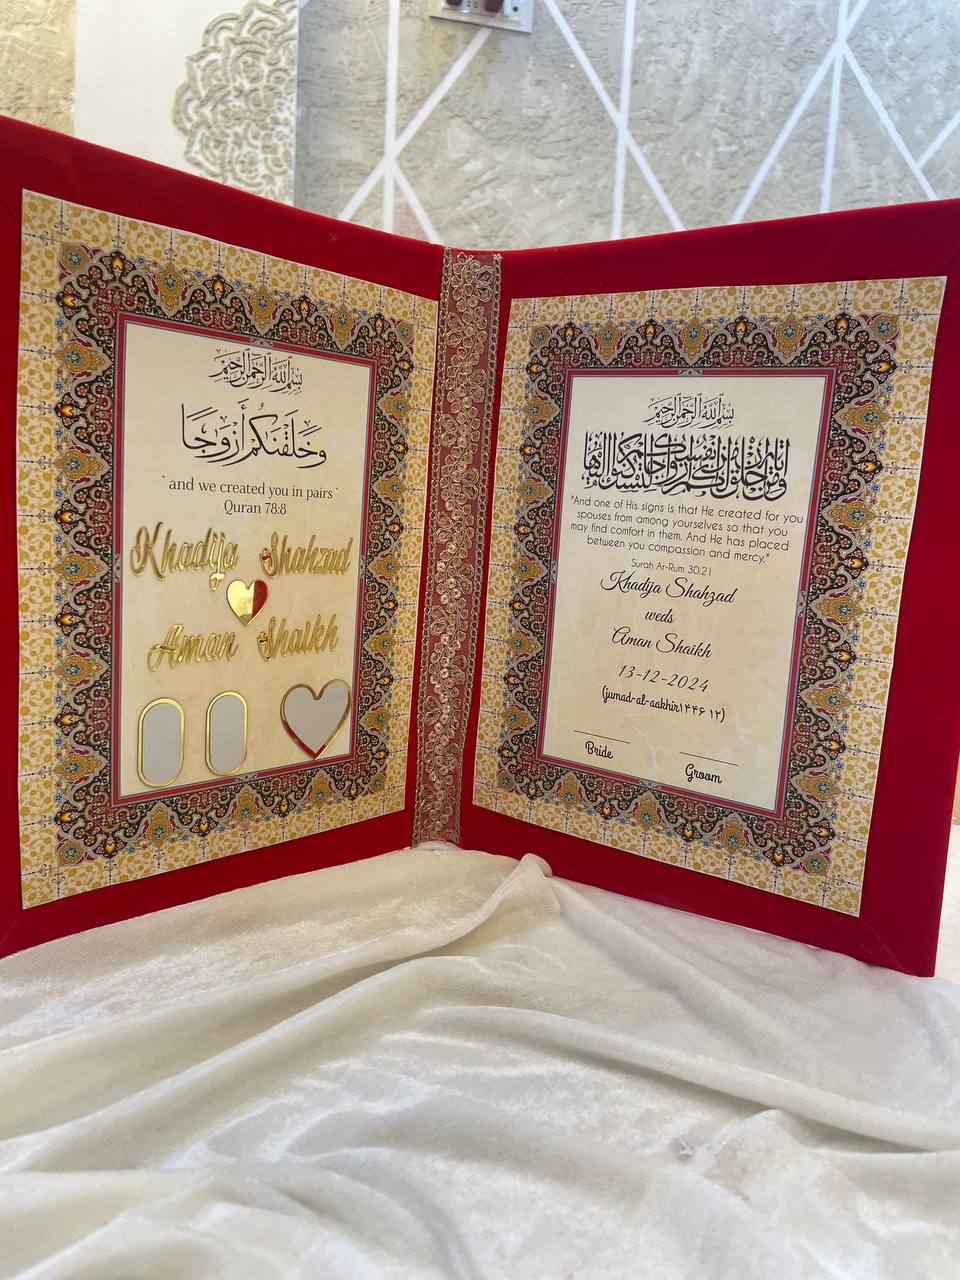 بسم الله الرحمن الرحيم
وَخَلَقْنَكُمْ أَزْوَجًا
" and we created you in pairs "
Quran 78:8
Khadija Shahzad
Aman Shaikh
بسم الله الرحمن الرحيم
"And one of His signs is that He created for you
spouses from among yourselves so that you
may find comfort in them. And He has placed
between you compassion and mercy."
Surah Ar-Rum 30:21
Khadija Shahzad
weds
Aman Shaikh
13-12-2024
(jumad-al-aakhir۱۴۴۶ ۱۲)
Bride
Groom